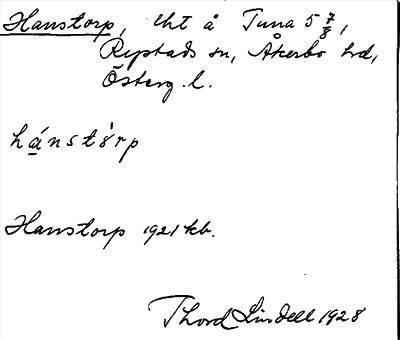 Hanstorp, lht å Tuna 5 7/8,
Rystads sn, Åkerbo hd,
Österg. l.
hánstò̀rp
Hanstorp 1921 kb.
Thord Lindell 1928